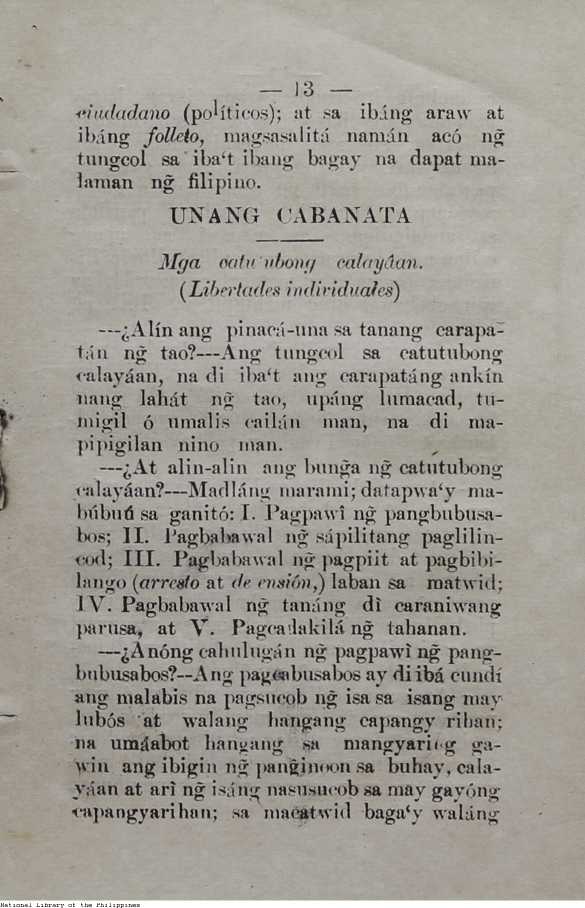 — 13 —
ciudadano (políticos); at sa ibáng araw at
ibáng folleto, magsasalitá namán acó ng̃
tungcol sa iba‘t ibang bagay na dapat ma-
laman ng̃ filipino.
UNANG CABANATA
Mga catutubong calayáan.
(Libertades individuales)
---¿Alín ang pinacá-una sa tanang carapa-
tán ng̃ tao?---Ang tungcol sa catutubong
calayáan, na di iba‘t ang carapatáng ankín
nang lahát ng̃ tao, upáng lumacad, tu-
migil ó umalis cailán man, na di ma-
pipigilan nino man.
---¿At alin-alin ang bung̃a ng̃ catutubong
calayáan?---Madláng marami; datapwa‘y ma-
búbuú sa ganitó: I. Pagpawì ng̃ pangbubusa-
bos; II. Pagbabawal ng̃ sápilitang paglilin-
cod; III. Pagbabawal ng̃ pagpiit at pagbibi-
lango (arresto at de ensión,) laban sa matwid;
IV. Pagbabawal ng̃ tanáng dì caraniwang
parusa, at V. Pagcadakilá ng̃ tahanan.
---¿Anóng cahulugán ng̃ pagpawì ng̃ pang-
bubusabos?--Ang pagcabusabos ay di ibá cundí
ang malabis na pagsucob ng̃ isa sa isang may
lubós at walang hangang capangy rihan;
na umáabot hangang sa mangyaring ga-
win ang ibigin ng̃ pang̃inoon sa buhay, cala-
yáan at arì ng̃ isáng nasusucob sa may gayóng
capangyarihan; sa macatwid baga‘y waláng
National Library of the Philippines